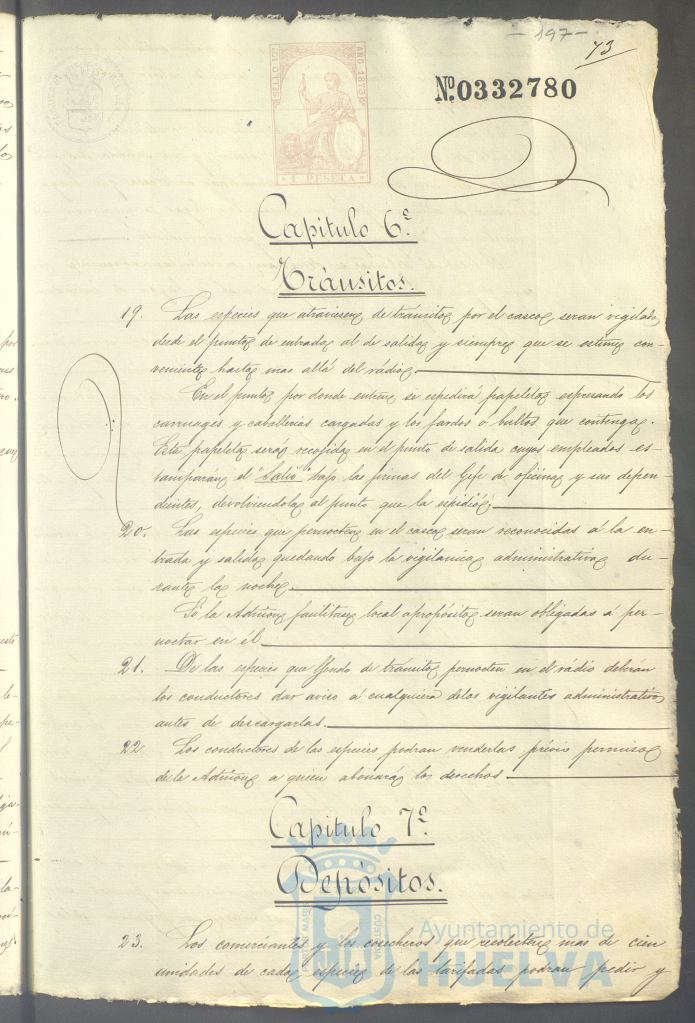 - 197 -
73
SELLO 10º
AÑO 1873
Nº 0332780
1 PESETA
Capitulo 6º
Tránsitos.
19. Las especies que atraviesen de tránsito por el casco, seran vigiladas
desde el punto de entrada al de salida y siempre que se estime con-
veniente hasta mas allá del rádio.
En el punto por donde entren se espedirá papeleta espresando los
carruages y caballerias cargadas y los fardos ó bultos que contenga.
Esta papeleta será recojida en el punto de salida cuyos empleados es-
tamparán el "Salió" bajo las firmas del Gefe de oficina y sus depen-
dientes, devolviendola al punto que la espidió.
20. Las especies que pernocten en el casco seran reconocidas á la en-
trada y salida quedando bajo la vigilancia administrativa du-
rante la noche.
Si la Admon facilitase local apropósito seran obligadas á per-
noctar en él.
21. De las especies que yendo de tránsito pernocten en el rádio deberán
los conductores dar aviso á cualquiera de los vigilantes administrativos
antes de descargarlas.
22. Los conductores de las especies podran venderlas prévio permiso
de la Admon a quien abonará los derechos.
Capitulo 7º
Depósitos.
23. Los comerciantes y los cosecheros que recolecten mas de cien
unidades de cada especie de las tarifadas podran pedir y
Ayuntamiento de
HUELVA